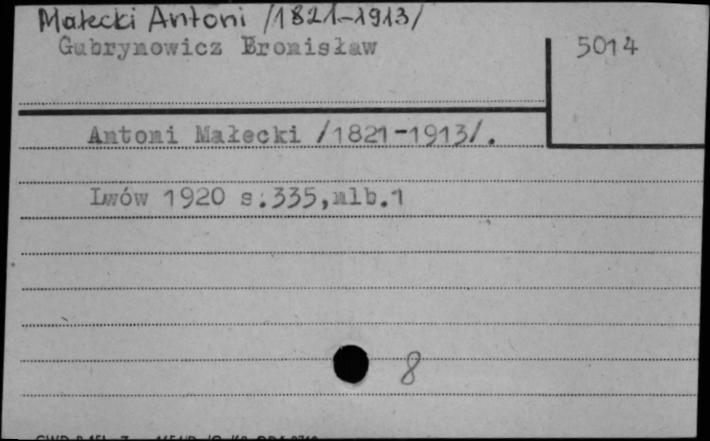 Małecki Antoni /1821-1913/
Gubrynowicz Bronisław
5014
Antoni Małecki /1821-1913/.
Lwów 1920 s.335,nlb.1
8